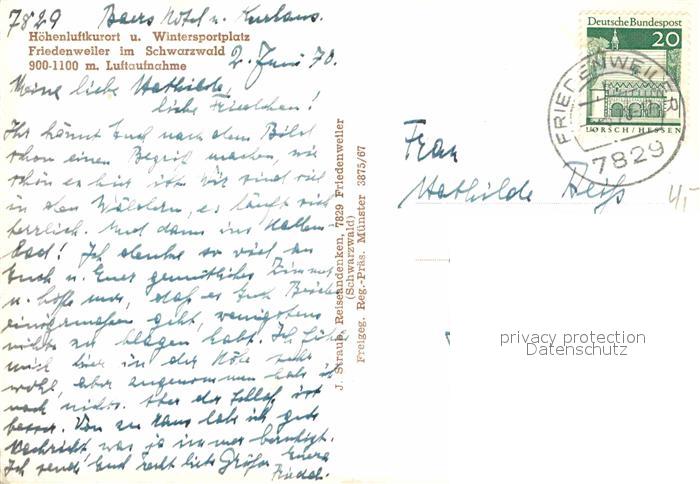 7829 Baers Hotel u. Kurhaus.
Höhenluftkurort u. Wintersportplatz
Friedenweiler im Schwarzwald
900-1100 m. Luftaufnahme
2. Juni 70.
Meine liebe Mathilde,
liebe Friedchen!
Ihr könnt Euch nach dem Bild
schon einen Begriff machen, wie
schön es hier ist. Wir sind viel
in den Wäldern, es läuft sich
herrlich. Und dann ins Hallen-
bad! Ich denke so viel an
Euch u. Euer gemütliches Zimmer
u. hoffe nur, daß es Euch Beiden
einigermaßen geht, wenigstens
nichts zu klagen habt. Ich fühle
mich hier in der Höhe sehr
wohl, aber angenommen hab ich
noch nichts. Aber der Schlaf ist
besser. Von zu Haus hab ich gute
Nachricht was ja immer beruhigt.
Ich sende Euch recht liebe Grüße Eure
Friedel.
J. Straub, Reiseandenken, 7829 Friedenweiler
(Schwarzwald)
Freigeg. Reg.-Präs. Münster 3875/67
Deutsche Bundespost
20
LORSCH/HESSEN
FRIEDENWEILER
7829
Frau
Mathilde Reiß
privacy protection
Datenschutz